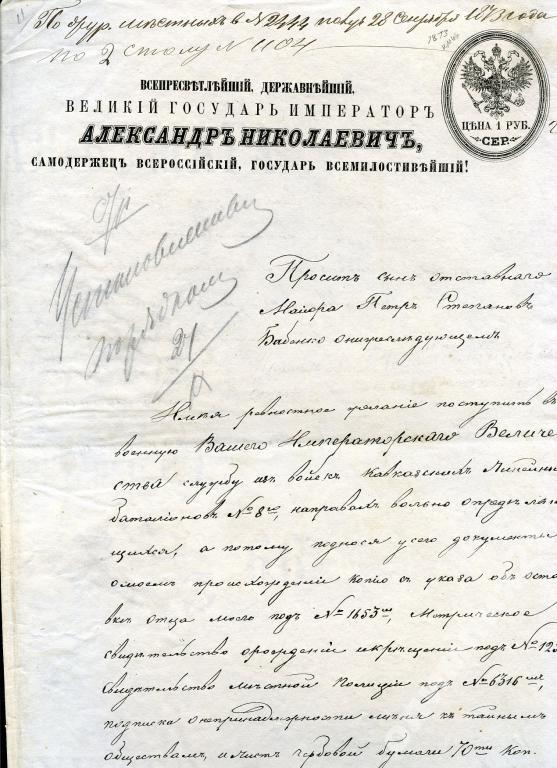 По журн. мѣстныхъ в № 2444 получ 28 Сентября 1873 года
по 2 столу № 1104
1873
ВСЕПРЕСВѢТЛѢЙШІЙ, ДЕРЖАВНѢЙШІЙ,
ВЕЛИКІЙ ГОСУДАРЬ ИМПЕРАТОРЪ
АЛЕКСАНДРЪ НИКОЛАЕВИЧЪ,
САМОДЕРЖЕЦЪ ВСЕРОССІЙСКІЙ, ГОСУДАРЬ ВСЕМИЛОСТИВѢЙШІЙ!
ЦѢНА 1 РУБ.
СЕР.
Установленнымъ
порядкомъ
Проситъ сынъ отставнаго
Маіора Петръ Степановъ
Бабенко о нижеслѣдующемъ
Имѣя ревностное желаніе поступить въ
военную Вашего Императорскаго Величе
ства службу въ войска Кавказскихъ Линейныхъ
баталіоновъ № 8го, на правахъ вольно опредѣляю
щихся, а потому поднося у сего документы
о моемъ происхожденіи копію съ указа объ оста
вкѣ отца моего подъ № 1653м, Метрическое
свидѣтельство о рожденіи и крещеніи подъ № 125
Свидѣтельство мѣстной Полиціи подъ № 6316мъ,
подписка о непринадлежности мѣня къ тайнымъ
обществамъ, и листъ гербовой бумаги 70ти коп.